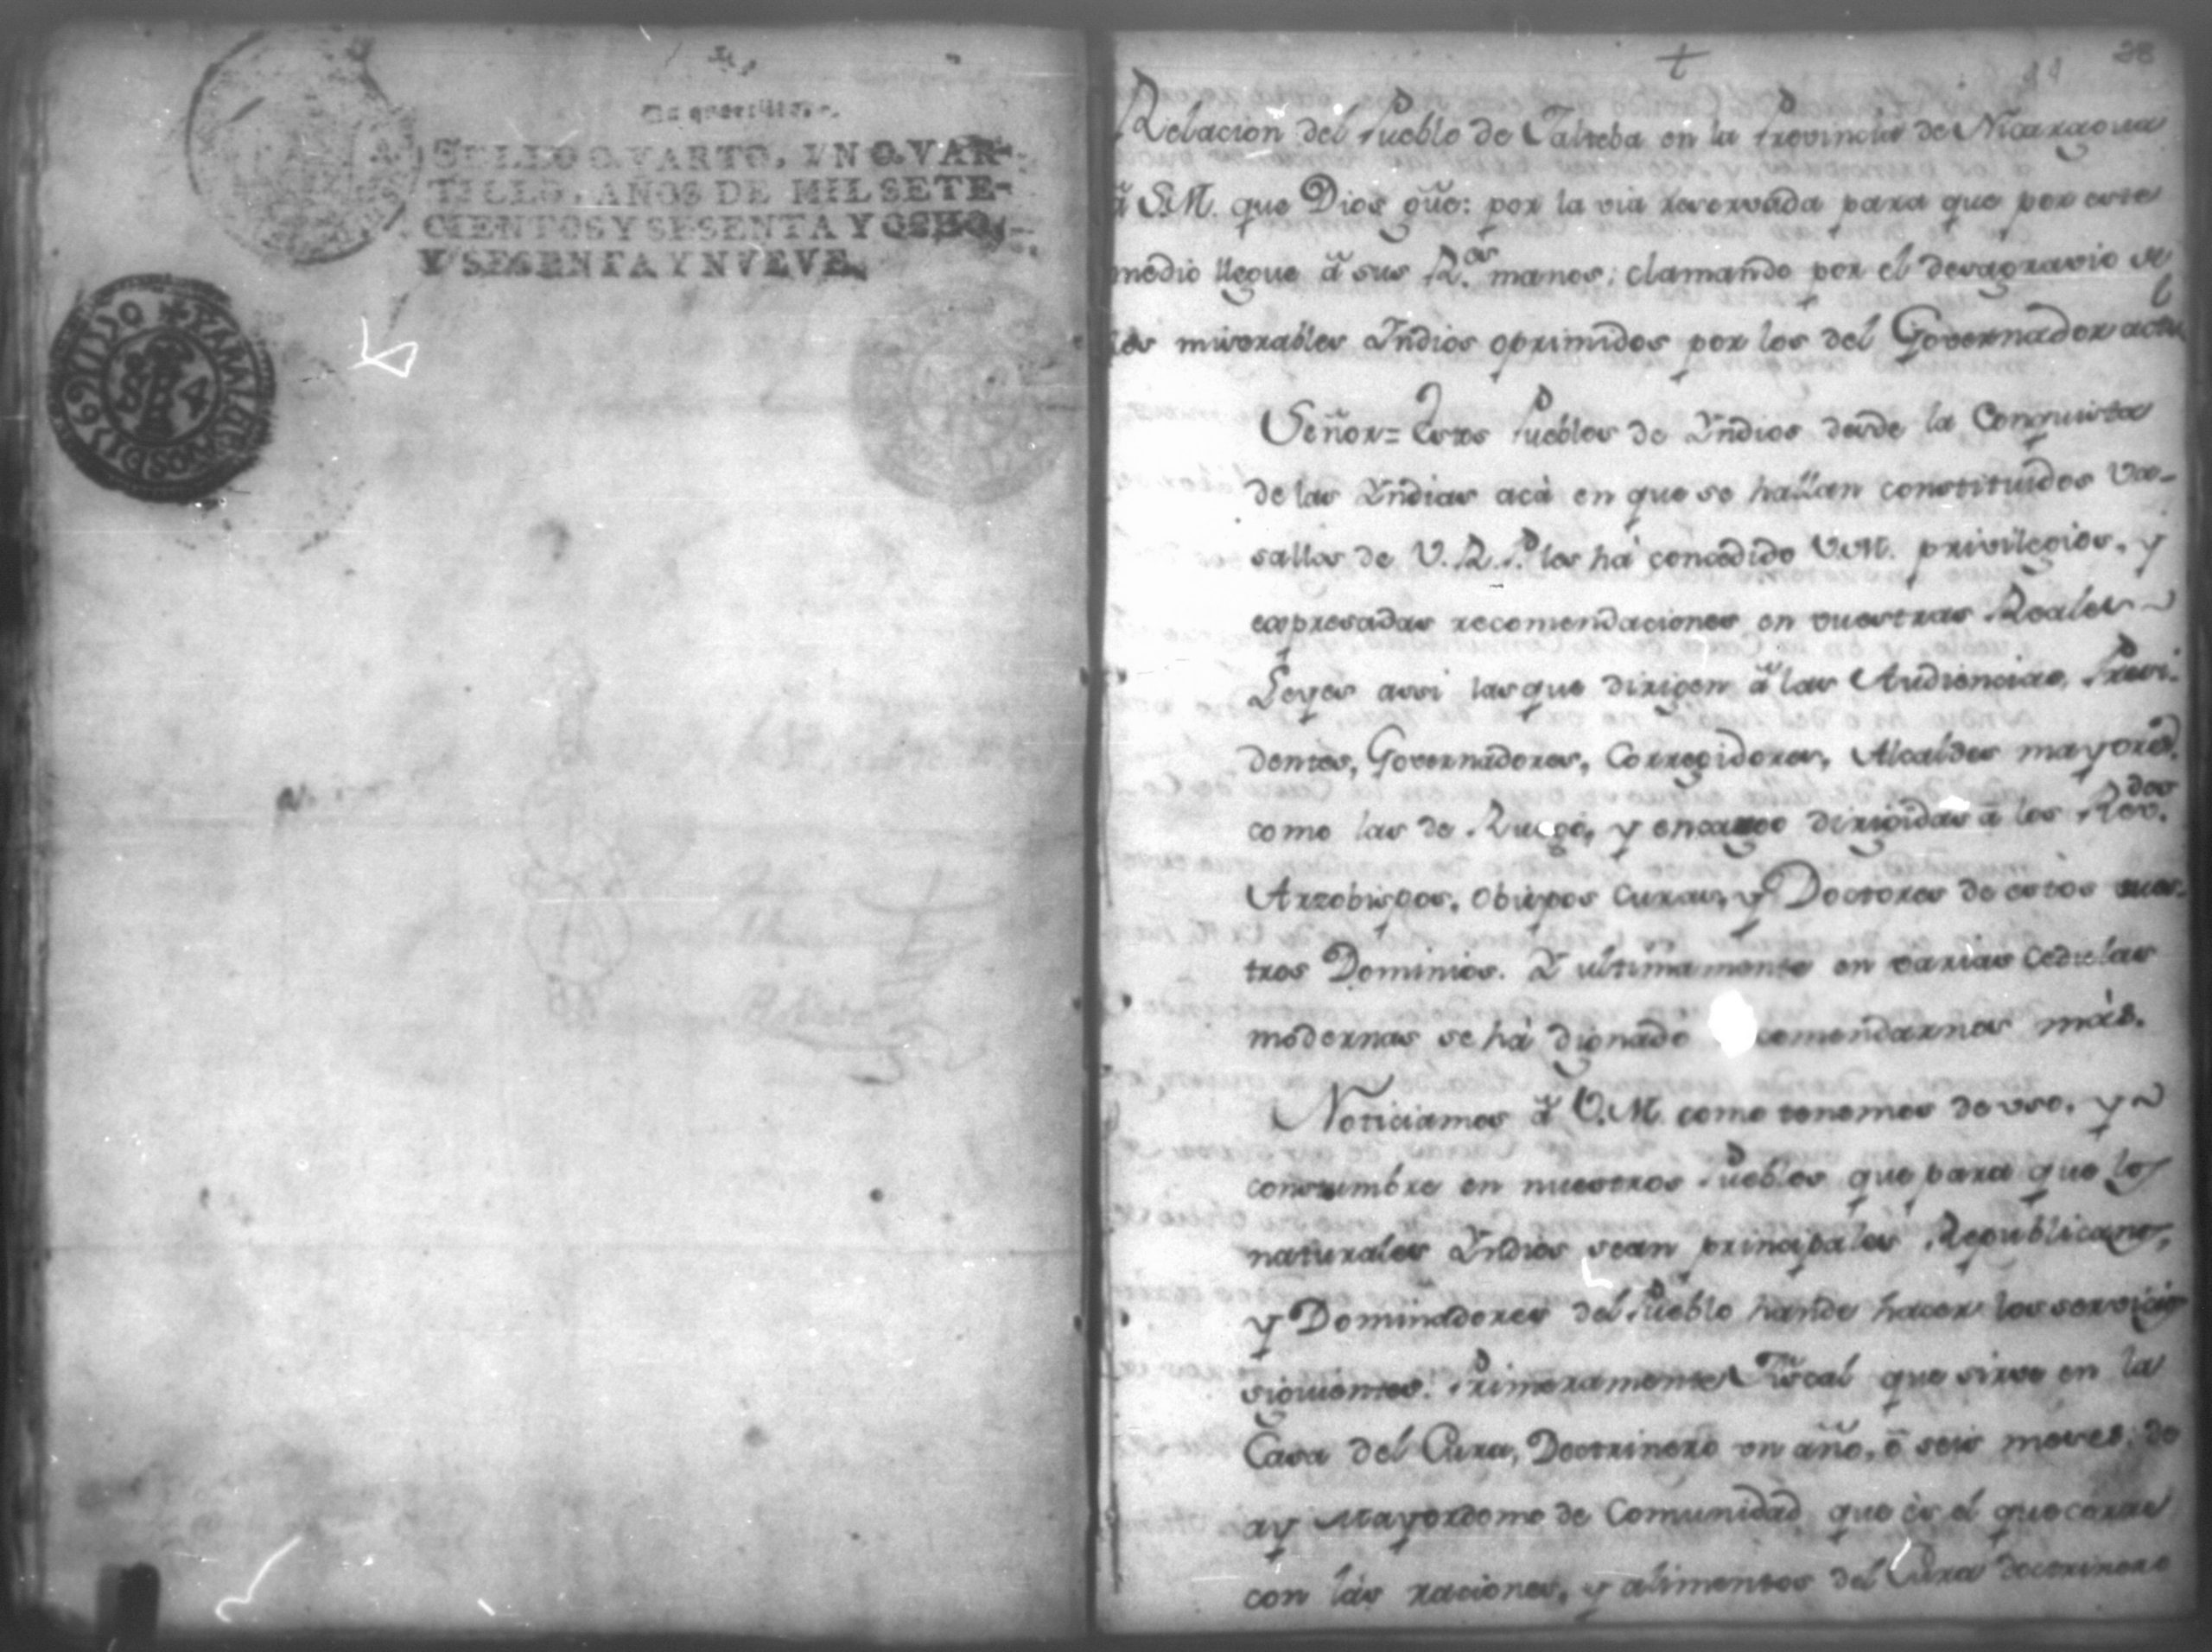 Un quartillo.
SELLO QVARTO, VN QVAR-
TILLO, AÑOS DE MIL SETE-
CIENTOS Y SESENTA Y OCHO,
Y SESENTA Y NVEVE.
28
Relacion del Pueblo de Jalteba en la Provincia de Nicaragua
â S.M. que Dios gũe: por la via reservada para que por este
medio llegue â sus R.es manos; clamando por el desagravio de
los miserables Yndios oprimidos por los del Governador actu
Señor= Estos Pueblos de Yndios desde la Conquista
de las Yndias acà en que se hallan constituidos Va-
sallos de V.R.P. les hà concedido V.M. privilegios, y
expresadas recomendaciones en vuestras Reales
Leyes assi las que dirigen â las Audiencias, Presi-
dentes, Governadores, Corregidores, Alcaldes mayores.
como las de Ruego, y encargo dirigidas â los Rev.dos
Arzobispos, Obispos Curas, y Doctores de estos vues-
tros Dominios. Y ultimamente en varias Cedulas
modernas se hà dignado comendarnos màs.
Noticiamos â V.M. como tenemos de uso, y
constumbre en nuestros Pueblos que para que los
naturales Yndios sean principales Republicanos,
y Dominadores del Pueblo hande hacer los servicios
siguientes. Primeramente Fiscal que sirve en la
Casa del Cura, Doctrinero un año, ô seis meses; de
ay Mayordomo de Comunidad que ès el que corre
con las raciones, y alimentos del Cura doctrinero